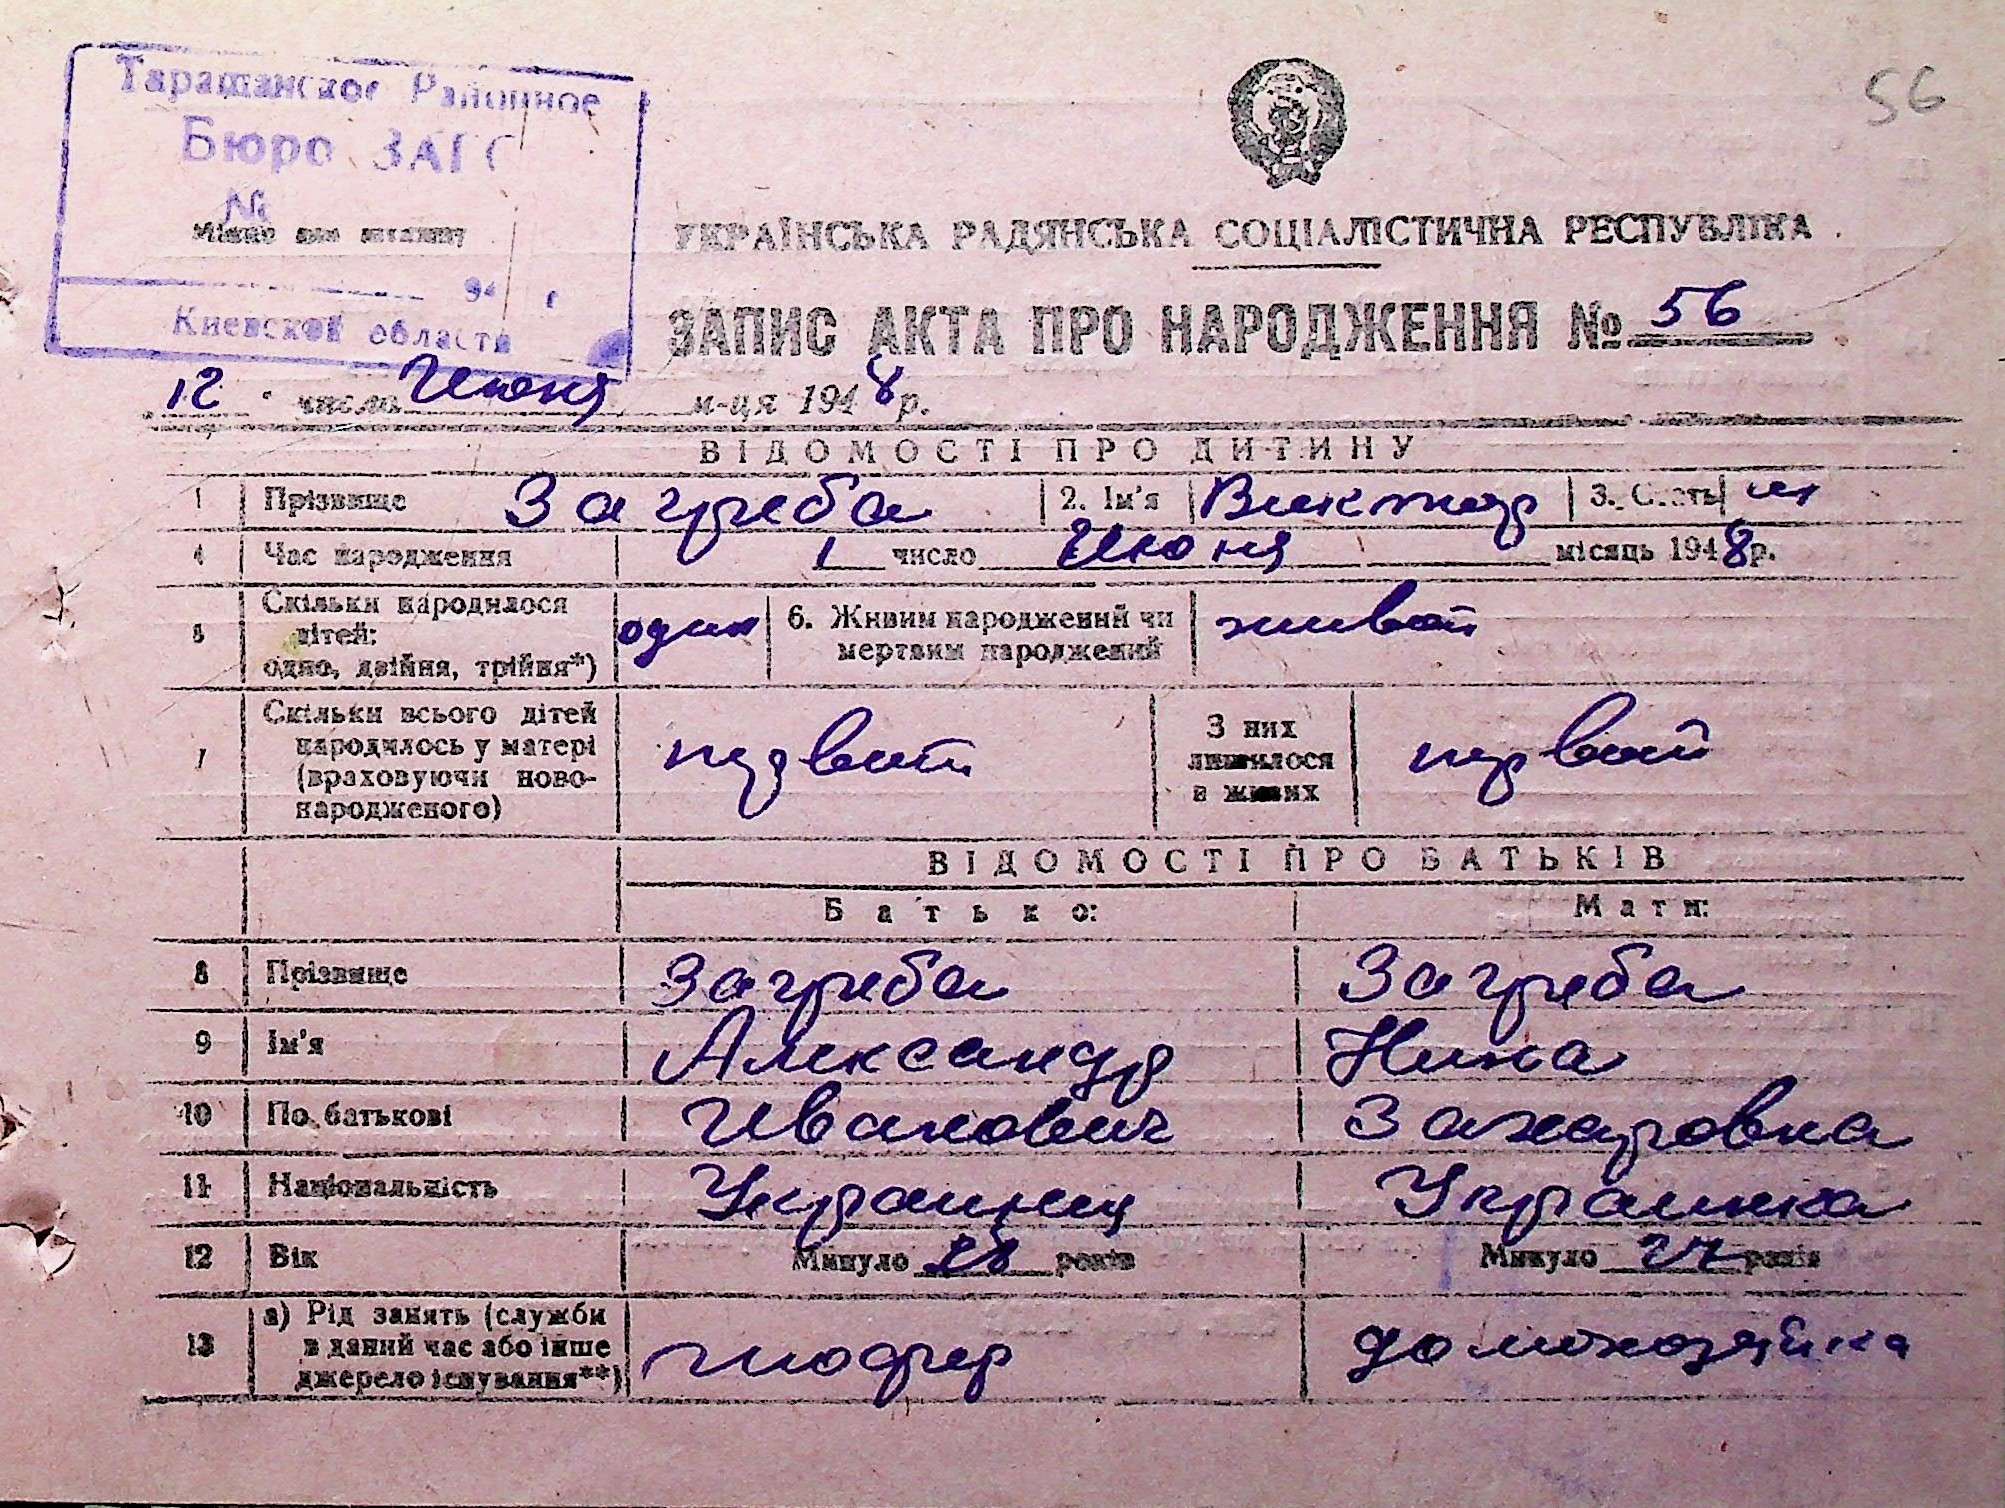 Таращанское Районное
Бюро ЗАГС
№
Місце для штампу
194 г
Киевской области
56
УКРАЇНСЬКА РАДЯНСЬКА СОЦІАЛІСТИЧНА РЕСПУБЛІКА
ЗАПИС АКТА ПРО НАРОДЖЕННЯ № 56
12 числа Июня м-ця 1948 р.
ВІДОМОСТІ ПРО ДИТИНУ
1 Прізвище Загреба 2. Ім'я Виктор 3. Стать м
4 Час народження 1 число Июня місяць 1948 р.
5 Скільки народилося дітей: одно, двійня, трійня*) один 6. Живим народжений чи мертвим народжений живой
7 Скільки всього дітей народилось у матері (враховуючи новонародженого) первой З них лишилося в живих первой
ВІДОМОСТІ ПРО БАТЬКІВ
Батько: Мати:
8 Прізвище Загреба Загреба
9 Ім'я Александр Нина
10 По батькові Иванович Захаровна
11 Національність Украинец Украинка
12 Вік Минуло 28 років Минуло років
13 а) Рід занять (служби в даний час або інше джерело існування**) шофер домохозяйка